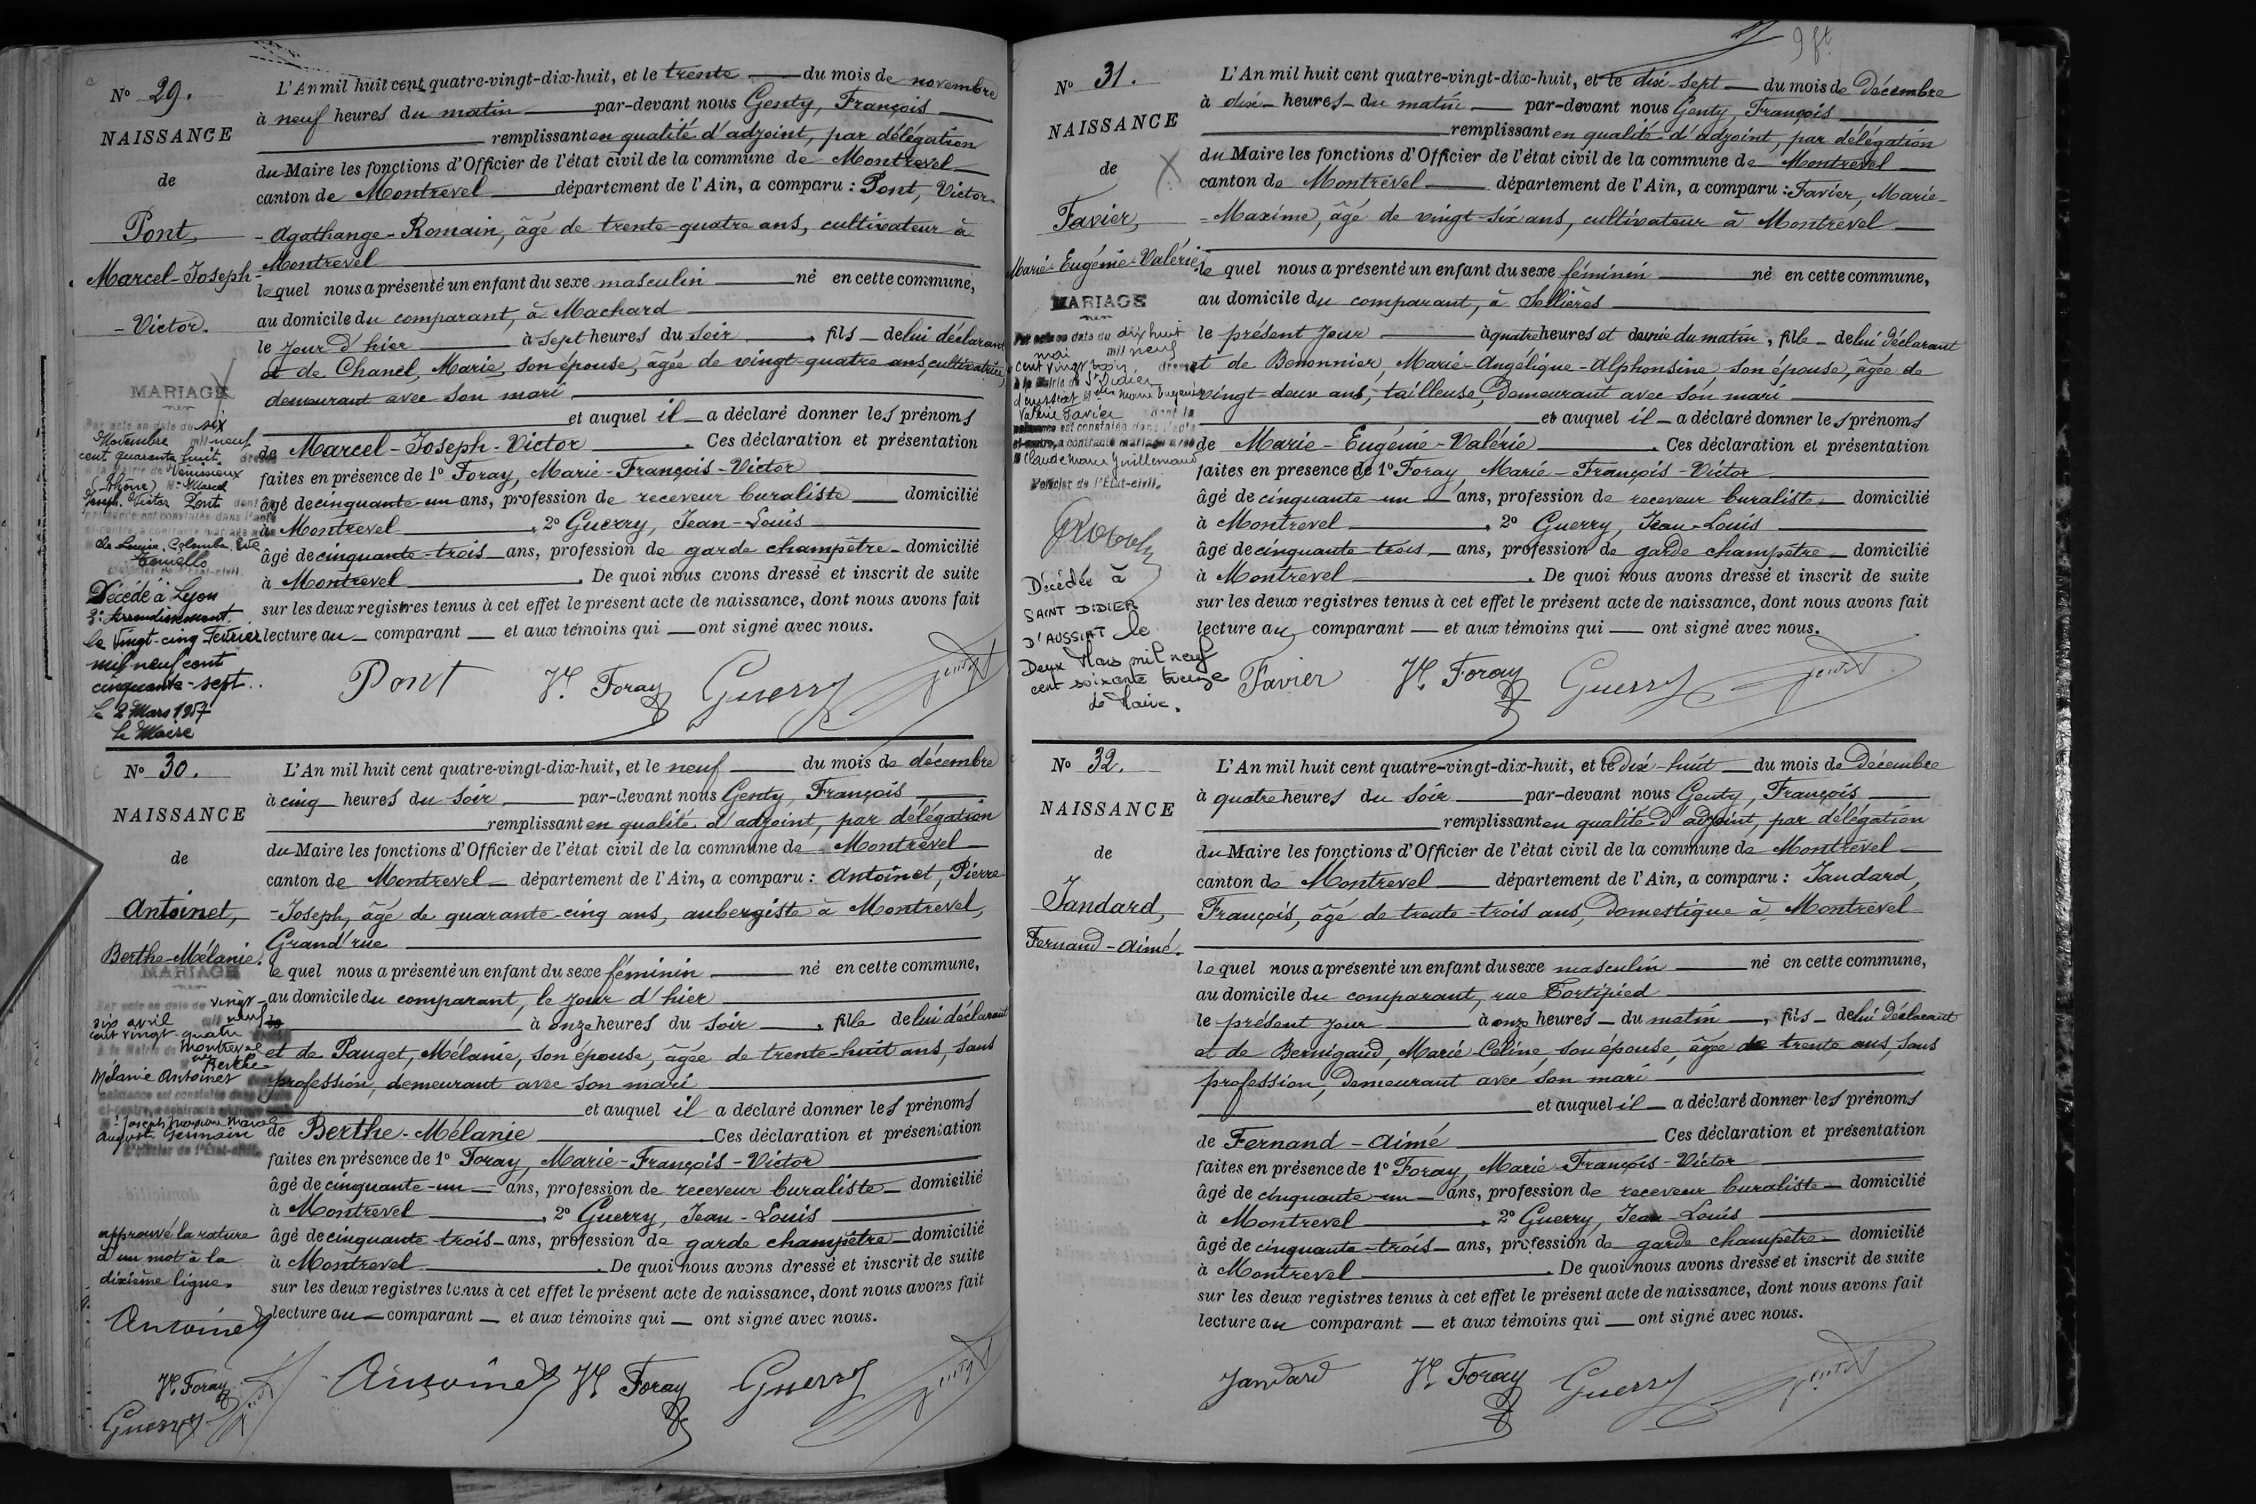 N° 29.
NAISSANCE
de
Pont,
Marcel-Joseph-
-Victor.
MARIAGE
Par acte en date du six
Novembre mil neuf
cent quarante huit
Vénissieux
(Rhône) Marcel
Joseph Victor Pont
de Louise, Colombe
Décédé à Lyon
3e Arrondissement
le vingt-cinq Février
mil neuf cent
cinquante-sept.
le 2 Mars 1957
Le Maire
L'An mil huit cent quatre-vingt-dix-huit, et le trente du mois de novembre
à neuf heures du matin par-devant nous Genty, François
remplissant en qualité d'adjoint, par délégation
du Maire les fonctions d'Officier de l'état civil de la commune de Montrevel
canton de Montrevel département de l'Ain, a comparu : Pont, Victor-
-Agathange-Romain, âgé de trente-quatre ans, cultivateur à
Montrevel
lequel nous a présenté un enfant du sexe masculin né en cette commune,
au domicile du comparant, à Machard
le jour d'hier à sept heures du soir, fils de lui déclarant
et de Chanel, Marie, son épouse, âgée de vingt-quatre ans, cultivatrice,
demeurant avec son mari
et auquel il a déclaré donner les prénoms
de Marcel-Joseph-Victor. Ces déclaration et présentation
faites en présence de 1° Foray, Marie-François-Victor
âgé de cinquante-un ans, profession de receveur buraliste domicilié
à Montrevel, 2° Guerry, Jean-Louis
âgé de cinquante-trois ans, profession de garde champêtre domicilié
à Montrevel. De quoi nous avons dressé et inscrit de suite
sur les deux registres tenus à cet effet le présent acte de naissance, dont nous avons fait
lecture au comparant et aux témoins qui ont signé avec nous.
Pont Vr Foray Guerry Genty
N° 30.
NAISSANCE
de
Antoinet,
Berthe-Mélanie.
MARIAGE
Par acte en date du vingt-
six avril mil neuf
cent vingt-quatre
Montrevel
Berthe
Mélanie Antoinet
August Germain
L'Officier de l'État-civil.
approuvé la rature
d'un mot à la
dixième ligne.
Antoinet
Vr Foray
Guerry Genty
L'An mil huit cent quatre-vingt-dix-huit, et le neuf du mois de décembre
à cinq heures du soir par-devant nous Genty, François
remplissant en qualité d'adjoint, par délégation
du Maire les fonctions d'Officier de l'état civil de la commune de Montrevel
canton de Montrevel département de l'Ain, a comparu : Antoinet, Pierre-
-Joseph, âgé de quarante-cinq ans, aubergiste à Montrevel,
Grand'rue
lequel nous a présenté un enfant du sexe féminin né en cette commune,
au domicile du comparant, le jour d'hier
à onze heures du soir, fille de lui déclarant
et de Pauget, Mélanie, son épouse, âgée de trente-huit ans, sans
profession, demeurant avec son mari
et auquel il a déclaré donner les prénoms
de Berthe-Mélanie Ces déclaration et présentation
faites en présence de 1° Foray, Marie-François-Victor
âgé de cinquante-un ans, profession de receveur buraliste domicilié
à Montrevel, 2° Guerry, Jean-Louis
âgé de cinquante-trois ans, profession de garde champêtre domicilié
à Montrevel. De quoi nous avons dressé et inscrit de suite
sur les deux registres tenus à cet effet le présent acte de naissance, dont nous avons fait
lecture au comparant et aux témoins qui ont signé avec nous.
Antoinet Vr Foray Guerry Genty
N° 31.
NAISSANCE
de
Favier,
Marie-Eugénie-Valérie
MARIAGE
Par acte en date du dix huit
mai mil neuf
cent vingt
à la Mairie de St Didier
d'aussiat Marie Eugénie
Valérie Favier dont la
naissance est constatée dans l'acte
ci-contre, a contracté mariage avec
Claude Marie Guillemaud
l'Officier de l'État-civil.
Décédée à
SAINT DIDIER
D'AUSSIAT le
Deux Mars mil neuf
cent soixante treize
Le Maire.
L'An mil huit cent quatre-vingt-dix-huit, et le dix-sept du mois de Décembre
à dix heures du matin par-devant nous Genty, François
remplissant en qualité d'adjoint, par délégation
du Maire les fonctions d'Officier de l'état civil de la commune de Montrevel
canton de Montrevel département de l'Ain, a comparu : Favier, Marie-
-Maxime, âgé de vingt-six ans, cultivateur à Montrevel
lequel nous a présenté un enfant du sexe féminin né en cette commune,
au domicile du comparant, à Sellières
le présent jour à quatre heures et demie du matin, fille de lui déclarant
et de Benonnier, Marie-Angélique-Alphonsine, son épouse, âgée de
vingt-deux ans, tailleuse, demeurant avec son mari
et auquel il a déclaré donner les prénoms
de Marie-Eugénie-Valérie. Ces déclaration et présentation
faites en présence de 1° Foray, Marie-François-Victor
âgé de cinquante-un ans, profession de receveur buraliste domicilié
à Montrevel, 2° Guerry, Jean-Louis
âgé de cinquante-trois ans, profession de garde champêtre domicilié
à Montrevel. De quoi nous avons dressé et inscrit de suite
sur les deux registres tenus à cet effet le présent acte de naissance, dont nous avons fait
lecture au comparant et aux témoins qui ont signé avec nous.
Favier Vr Foray Guerry Genty
N° 32.
NAISSANCE
de
Jandard,
Fernand-Aimé.
L'An mil huit cent quatre-vingt-dix-huit, et le dix-huit du mois de Décembre
à quatre heures du soir par-devant nous Genty, François
remplissant en qualité d'adjoint, par délégation
du Maire les fonctions d'Officier de l'état civil de la commune de Montrevel
canton de Montrevel département de l'Ain, a comparu : Jandard,
François, âgé de trente-trois ans, Domestique à Montrevel
lequel nous a présenté un enfant du sexe masculin né en cette commune,
au domicile du comparant, rue Tortipied
le présent jour à onze heures du matin, fils de lui déclarant
et de Bernigaud, Marie-Céline, son épouse, âgée de trente ans, sans
profession, demeurant avec son mari
et auquel il a déclaré donner les prénoms
de Fernand-Aimé Ces déclaration et présentation
faites en présence de 1° Foray, Marie-François-Victor
âgé de cinquante-un ans, profession de receveur buraliste domicilié
à Montrevel, 2° Guerry, Jean-Louis
âgé de cinquante-trois ans, profession de garde champêtre domicilié
à Montrevel. De quoi nous avons dressé et inscrit de suite
sur les deux registres tenus à cet effet le présent acte de naissance, dont nous avons fait
lecture au comparant et aux témoins qui ont signé avec nous.
Jandard Vr Foray Guerry Genty